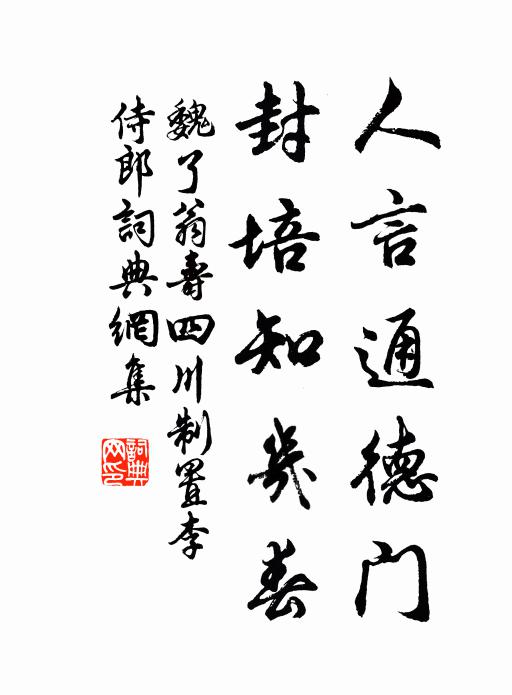 人言通德門
封培知幾春
魏了翁壽四川制置李
侍郎詞典網集
詞典網印